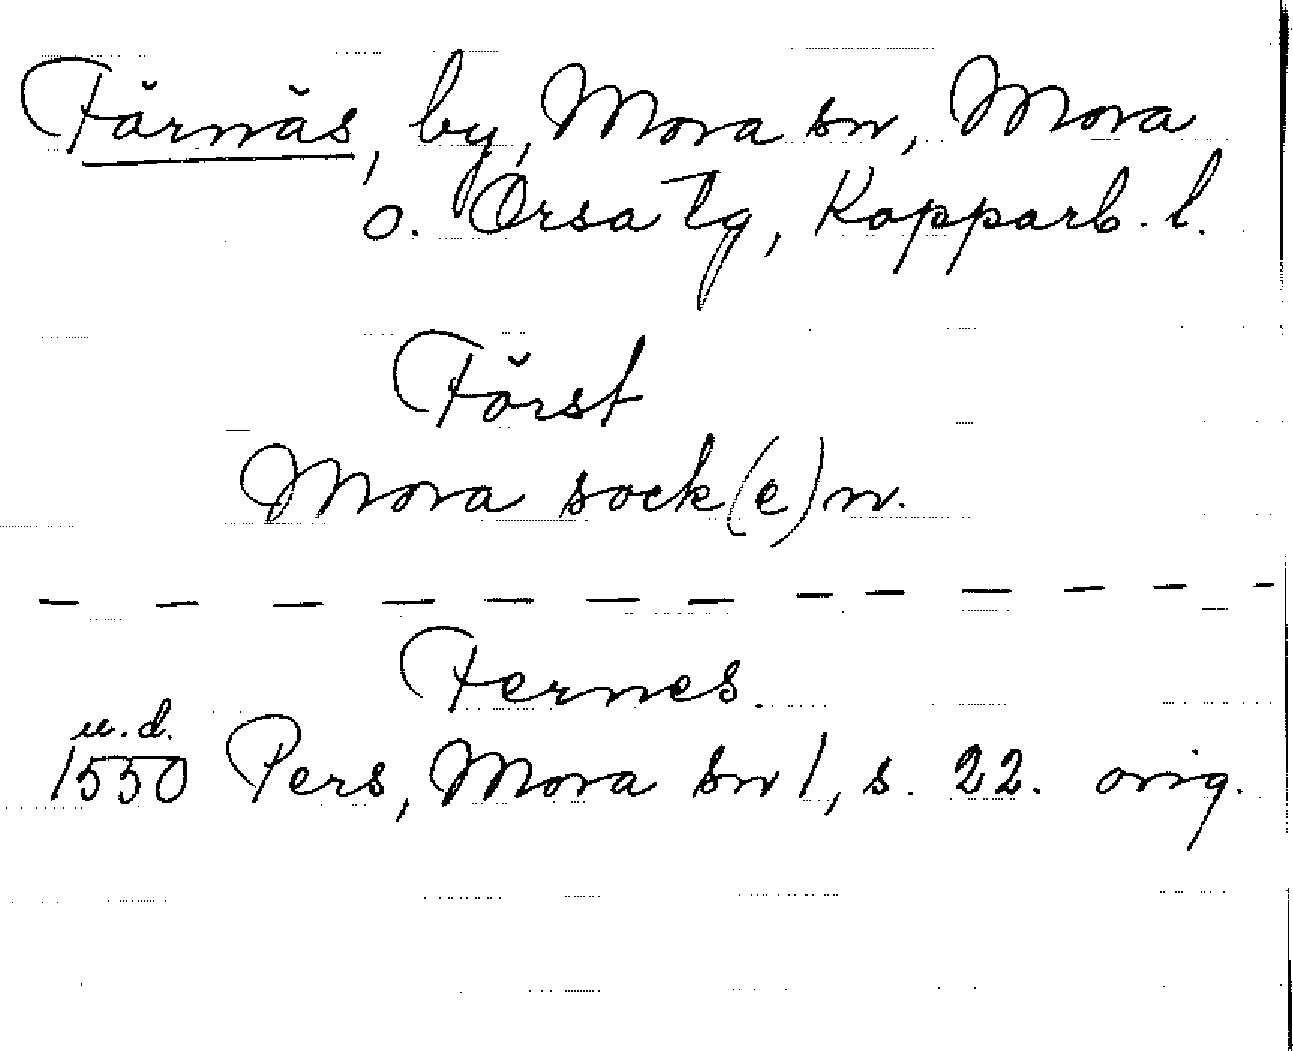 Färnäs, by, Mora sn, Mora
o. Orsa tg, Kopparb. l.
Först
Mora sock(e)n.
Fernes.
u. d.
1550 Pers, Mora sn 1, s. 22. orig.